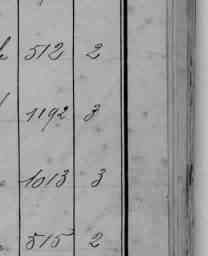 512 2
1192 3
1013 3
515 2